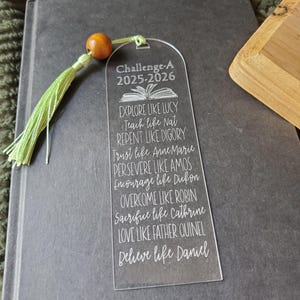 Challenge-A
2025-2026
EXPLORE LIKE LUCY
Teach like Nat
REPENT LIKE DIGORY
Trust like AnneMarie
PERSEVERE LIKE AMOS
Encourage like Dickon
OVERCOME LIKE ROBIN
Sacrifice like Cathrine
LOVE LIKE FATHER QUINEL
Believe like Daniel